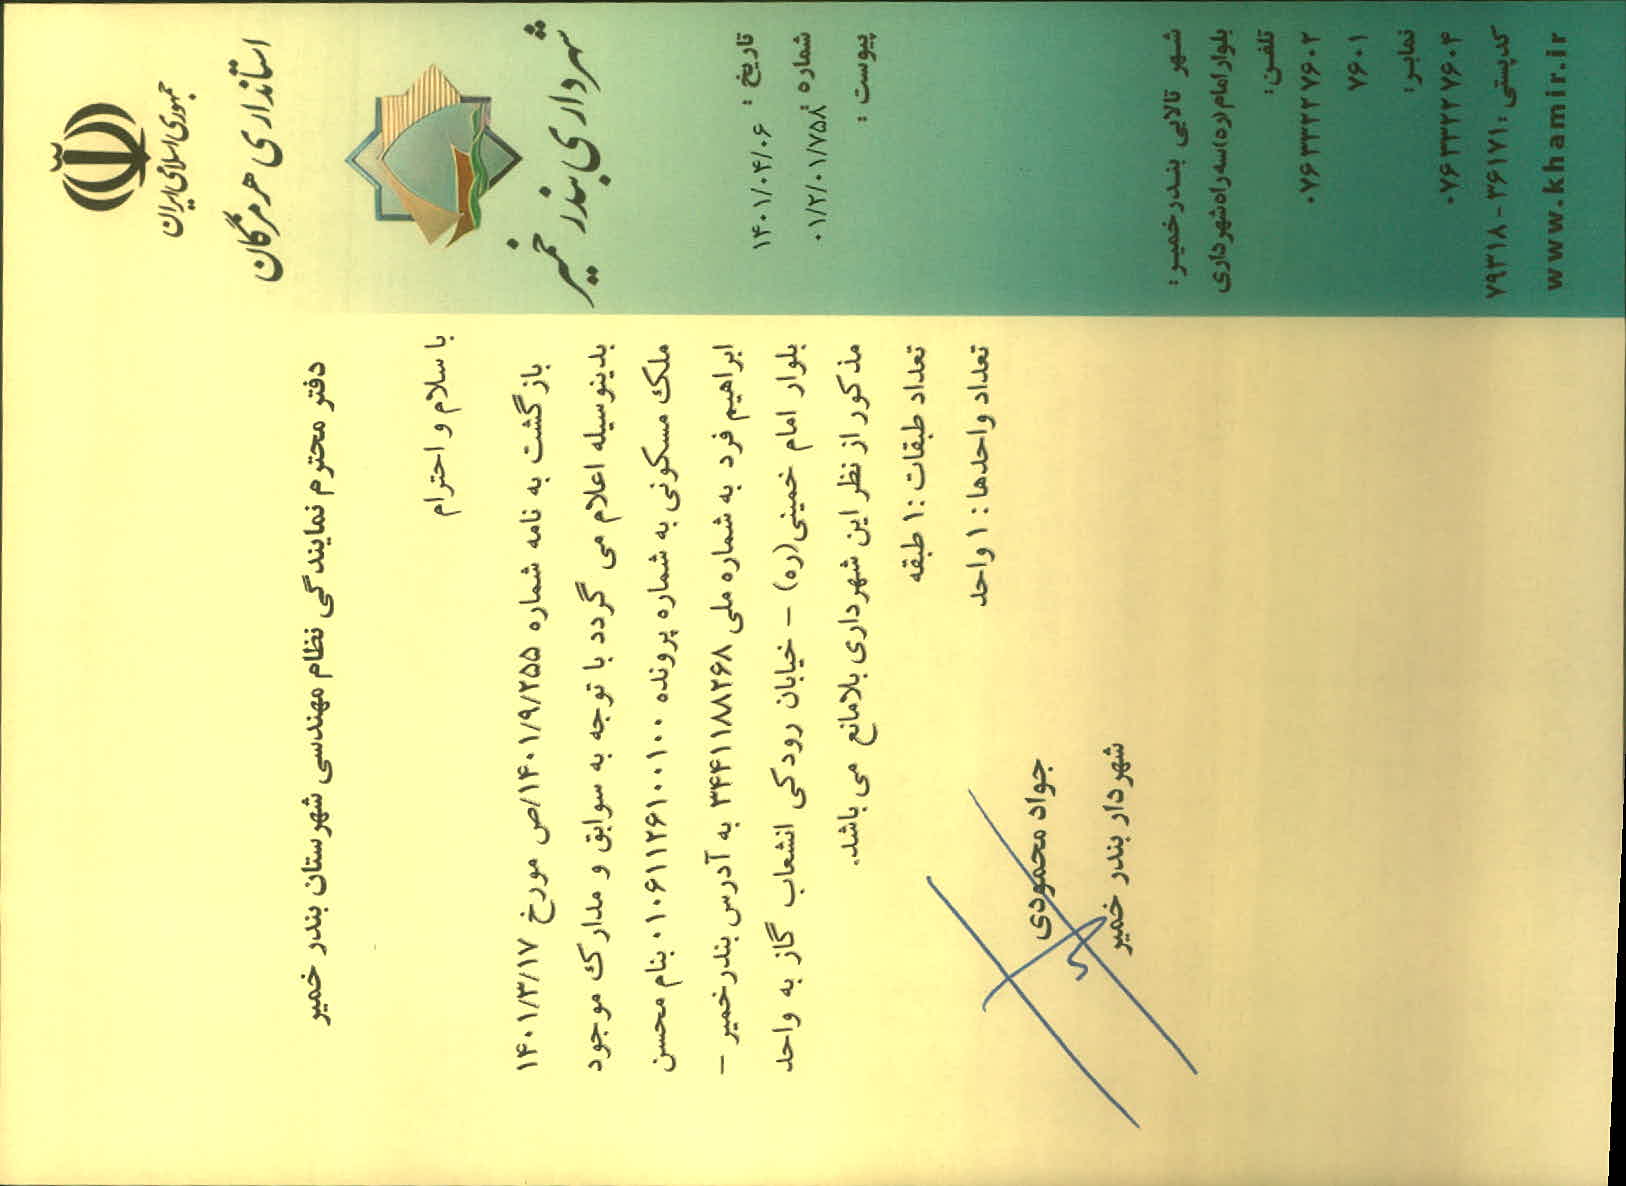 جمهوری اسلامی ایران
استانداری هرمزگان
شهرداری بندر خمیر
تاریخ : ۱۴۰۱/۰۴/۰۶
شماره : ۰۱/۲/۰۱/۷۵۸
پیوست :
دفتر محترم نمایندگی نظام مهندسی شهرستان بندر خمیر
با سلام و احترام
بازگشت به نامه شماره ۱۴۰۱/۹/۲۵۵/ص مورخ ۱۴۰۱/۳/۱۷
بدینوسیله اعلام می گردد با توجه به سوابق و مدارک موجود
ملک مسکونی به شماره پرونده ۰۱۰۶۱۱۲۶۱۰۰۱۰۰ بنام محسن
ابراهیم فرد به شماره ملی ۳۴۴۱۱۸۸۲۶۸ به آدرس بندرخمیر –
بلوار امام خمینی(ره) – خیابان رودکی انشعاب گاز به واحد
مذکور از نظر این شهرداری بلامانع می باشد.
تعداد طبقات :۱ طبقه
تعداد واحدها : ۱ واحد
جواد محمودی
شهردار بندر خمیر
شهر تالابی بندرخمیر:
بلوار امام (ره) سه راه شهرداری
تلفن:
۰۷۶۳۳۲۲۷۶۰۲
۷۶۰۱
نمابر:
۰۷۶۳۳۲۲۷۶۰۴
کدپستی : ۳۶۱۷۱ - ۷۹۳۱۸
www.khamir.ir